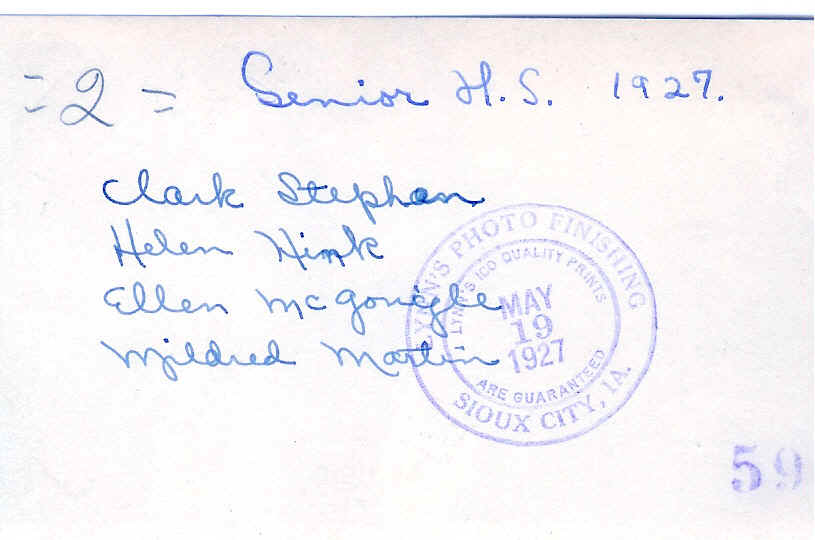 = 2 = Senior H.S. 1927.
Clark Stephan
Helen Hink
Ellen McGonigle
Mildred Martin
LYNN'S PHOTO FINISHING
LYNN'S ICO QUALITY PRINTS
MAY
19
1927
ARE GUARANTEED
SIOUX CITY, IA.
59